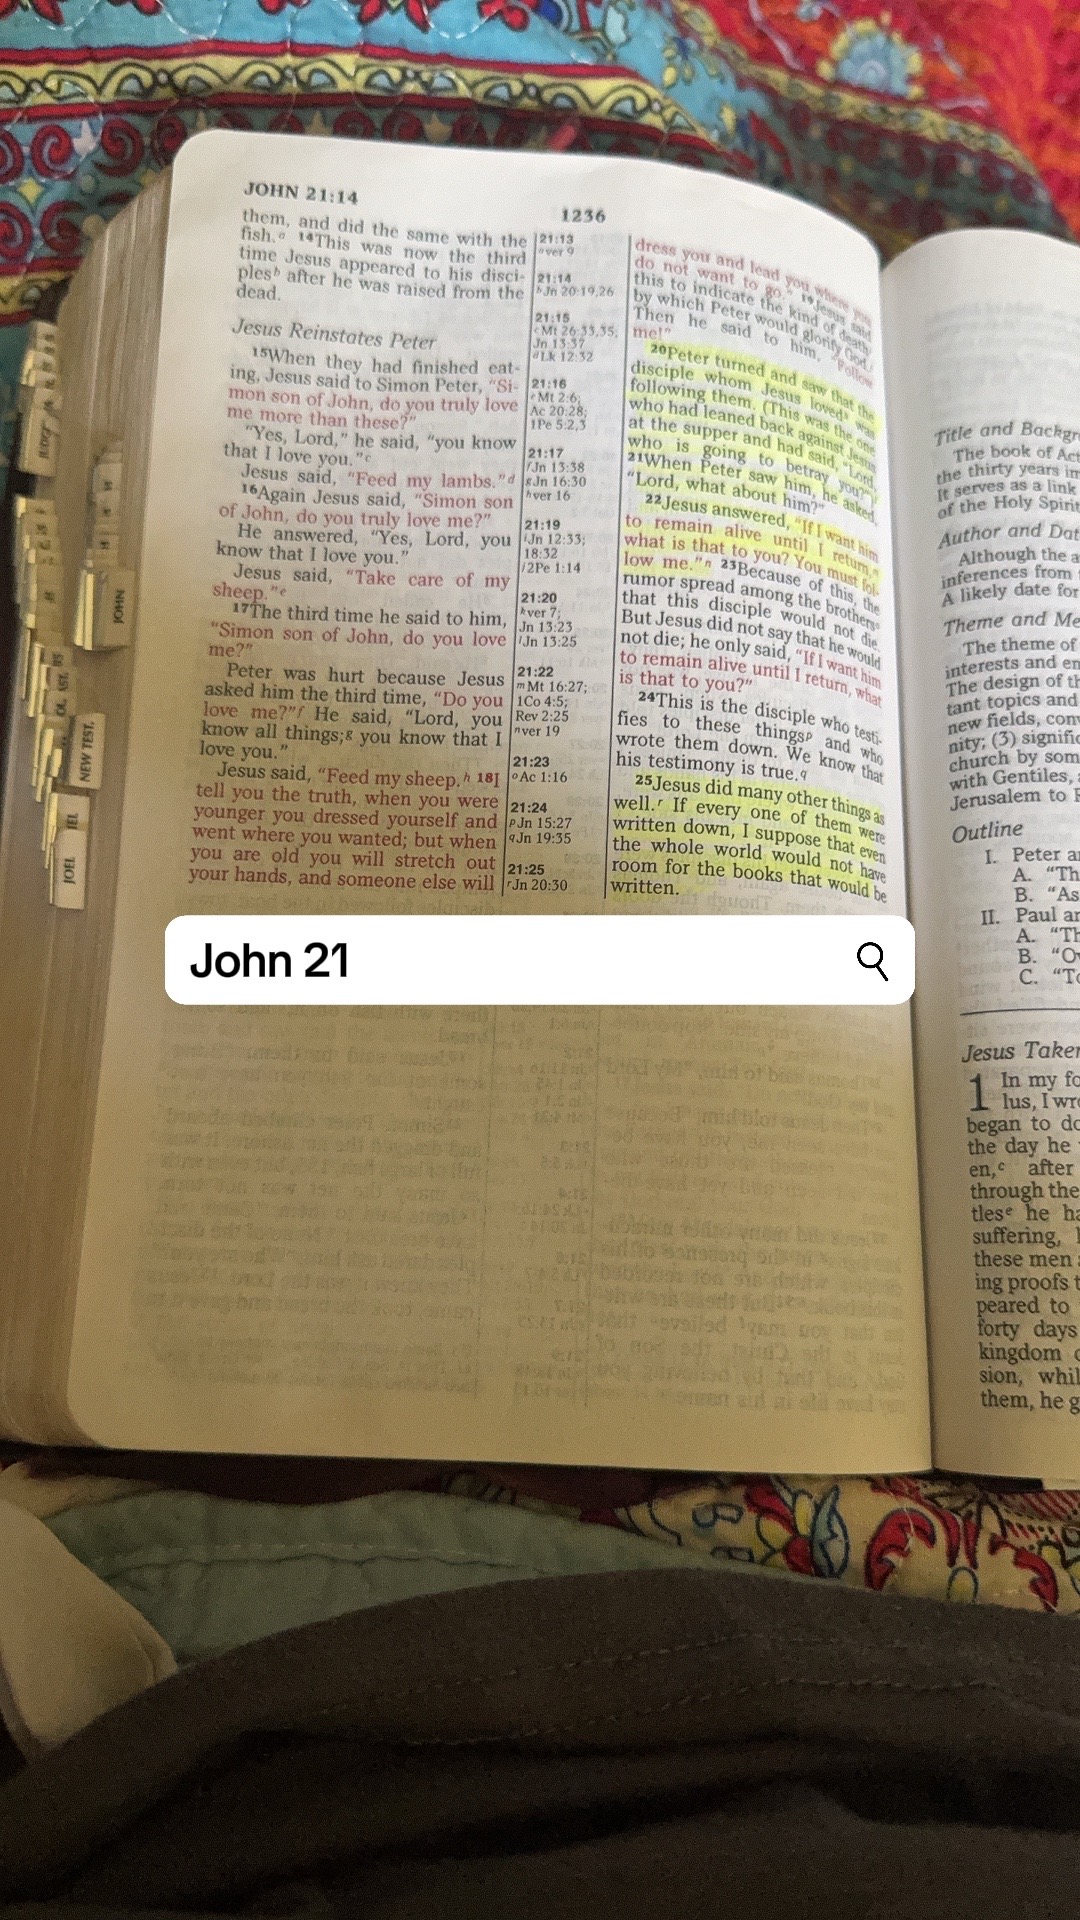 JOHN 21:14
1236
them, and did the same with the
fish.a 14This was now the third
time Jesus appeared to his disci-
plesb after he was raised from the
dead.
Jesus Reinstates Peter
15When they had finished eat-
ing, Jesus said to Simon Peter, “Si-
mon son of John, do you truly love
me more than these?”
“Yes, Lord,” he said, “you know
that I love you.”c
Jesus said, “Feed my lambs.”d
16Again Jesus said, “Simon son
of John, do you truly love me?”
He answered, “Yes, Lord, you
know that I love you.”
Jesus said, “Take care of my
sheep.”e
17The third time he said to him,
“Simon son of John, do you love
me?”
Peter was hurt because Jesus
asked him the third time, “Do you
love me?”f He said, “Lord, you
know all things;g you know that I
love you.”
Jesus said, “Feed my sheep.h 18I
tell you the truth, when you were
younger you dressed yourself and
went where you wanted; but when
you are old you will stretch out
your hands, and someone else will
21:13
aver 9
21:14
bJn 20:19,26
21:15
cMt 26:33,35;
Jn 13:37
dLk 12:32
21:16
eMt 2:6;
Ac 20:28;
1Pe 5:2,3
21:17
fJn 13:38
gJn 16:30
hver 16
21:19
iJn 12:33;
18:32
j2Pe 1:14
21:20
kver 7;
Jn 13:23
lJn 13:25
21:22
mMt 16:27;
1Co 4:5;
Rev 2:25
nver 19
21:23
oAc 1:16
21:24
pJn 15:27
qJn 19:35
21:25
rJn 20:30
dress you and lead you where you
do not want to go.” 19Jesus said
this to indicate the kind of death
by which Peter would glorify God.
Then he said to him, “Follow
me!”
20Peter turned and saw that the
disciple whom Jesus loved was
following them. (This was the one
who had leaned back against Jesus
at the supper and had said, “Lord,
who is going to betray you?”)
21When Peter saw him, he asked,
“Lord, what about him?”
22Jesus answered, “If I want him
to remain alive until I return,
what is that to you? You must fol-
low me.”n 23Because of this, the
rumor spread among the brothers
that this disciple would not die.
But Jesus did not say that he would
not die; he only said, “If I want him
to remain alive until I return, what
is that to you?”
24This is the disciple who testi-
fies to these thingsp and who
wrote them down. We know that
his testimony is true.q
25Jesus did many other things as
well.r If every one of them were
written down, I suppose that even
the whole world would not have
room for the books that would be
written.
John 21
JOHN
NEW TEST.
JOEL
Title and Backgr
The book of Act
the thirty years in
It serves as a link
of the Holy Spirit
Author and Dat
Although the a
inferences from
A likely date for
Theme and Me
The theme of
interests and en
The design of th
tant topics and
new fields, conv
nity; (3) signific
church by som
with Gentiles,
Jerusalem to R
Outline
I. Peter an
A. “Th
B. “As
II. Paul an
A. “Th
B. “Ov
C. “To
Jesus Taken
1 In my fo
lus, I wro
began to do
the day he
en,c after
through the
tlese he ha
suffering,
these men
ing proofs t
peared to
forty days
kingdom o
sion, whil
them, he g